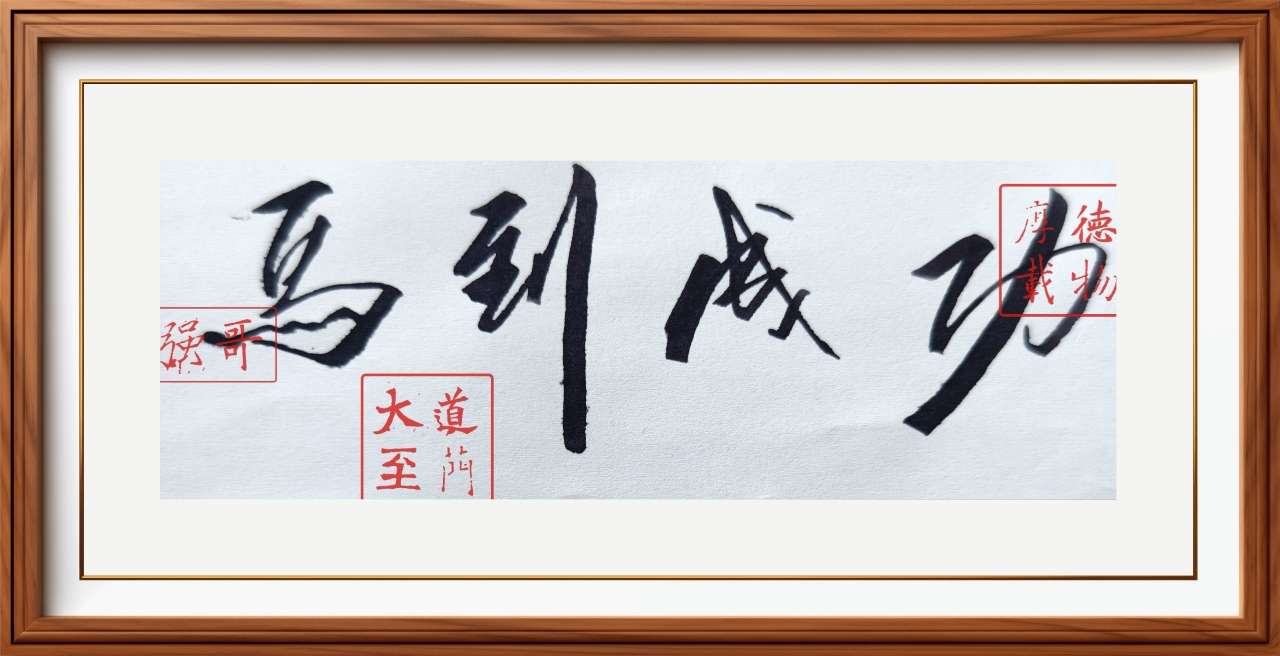 馬到成功
厚德
載物
强哥
大道
至